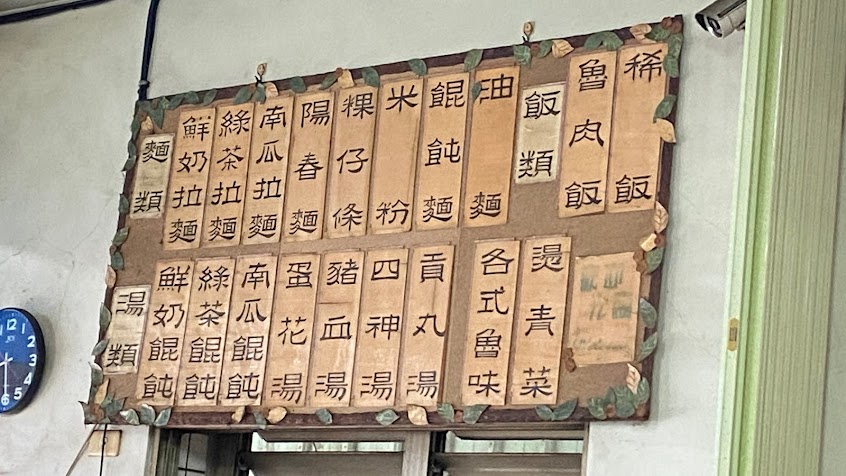 麵類
鮮奶拉麵
綠茶拉麵
南瓜拉麵
陽春麵
粿仔條
米粉
餛飩麵
油麵
飯類
魯肉飯
稀飯
湯類
鮮奶餛飩
綠茶餛飩
南瓜餛飩
蛋花湯
豬血湯
四神湯
貢丸湯
各式魯味
燙青菜
12
1
2
3
4
5
6